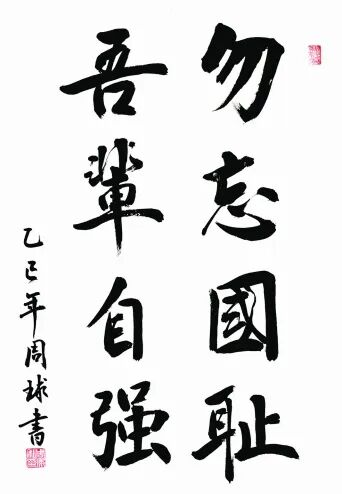 勿忘國耻
吾輩自强
乙巳年周球書